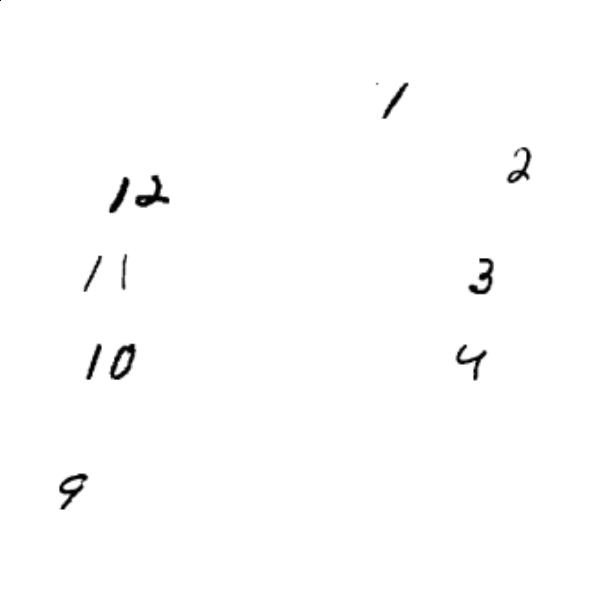 1
2
12
11
3
10
4
9